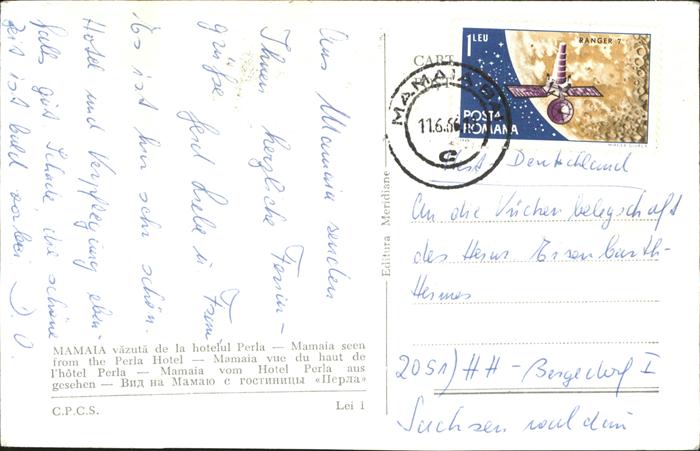 Aus Mamaia senden
Ihnen herzliche Ferien-
grüße Gerd Liebe u. Frau.
Es ist hier sehr schön.
Hotel und Verpflegung eben-
falls gut. Schade die schöne
Zeit ist bald vorbei D. O.
MAMAIA văzută de la hotelul Perla — Mamaia seen
from the Perla Hotel — Mamaia vue du haut de
l'hôtel Perla — Mamaia vom Hotel Perla aus
gesehen — Вид на Мамаю с гостиницы «Перла»
C.P.C.S. Lei 1
Editura Meridiane
CART
1 LEU
RANGER 7
POSTA
ROMANA
MAMAIA
11.6.66
C
West-Deutschland
An die Küchenbelegschaft
des Herrn Eisenbarth-
Hermes
2051) HH - Bergedorf I
Sachsenwald